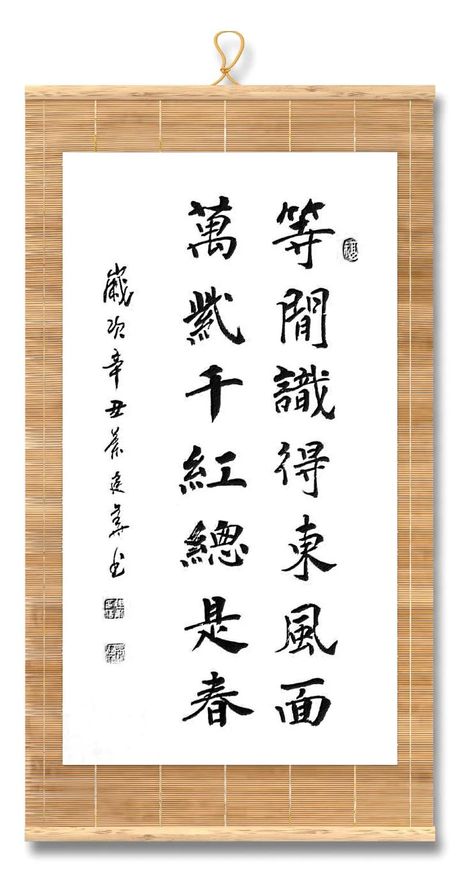 等間識得東風面
萬紫千紅總是春
歲次辛丑建華书